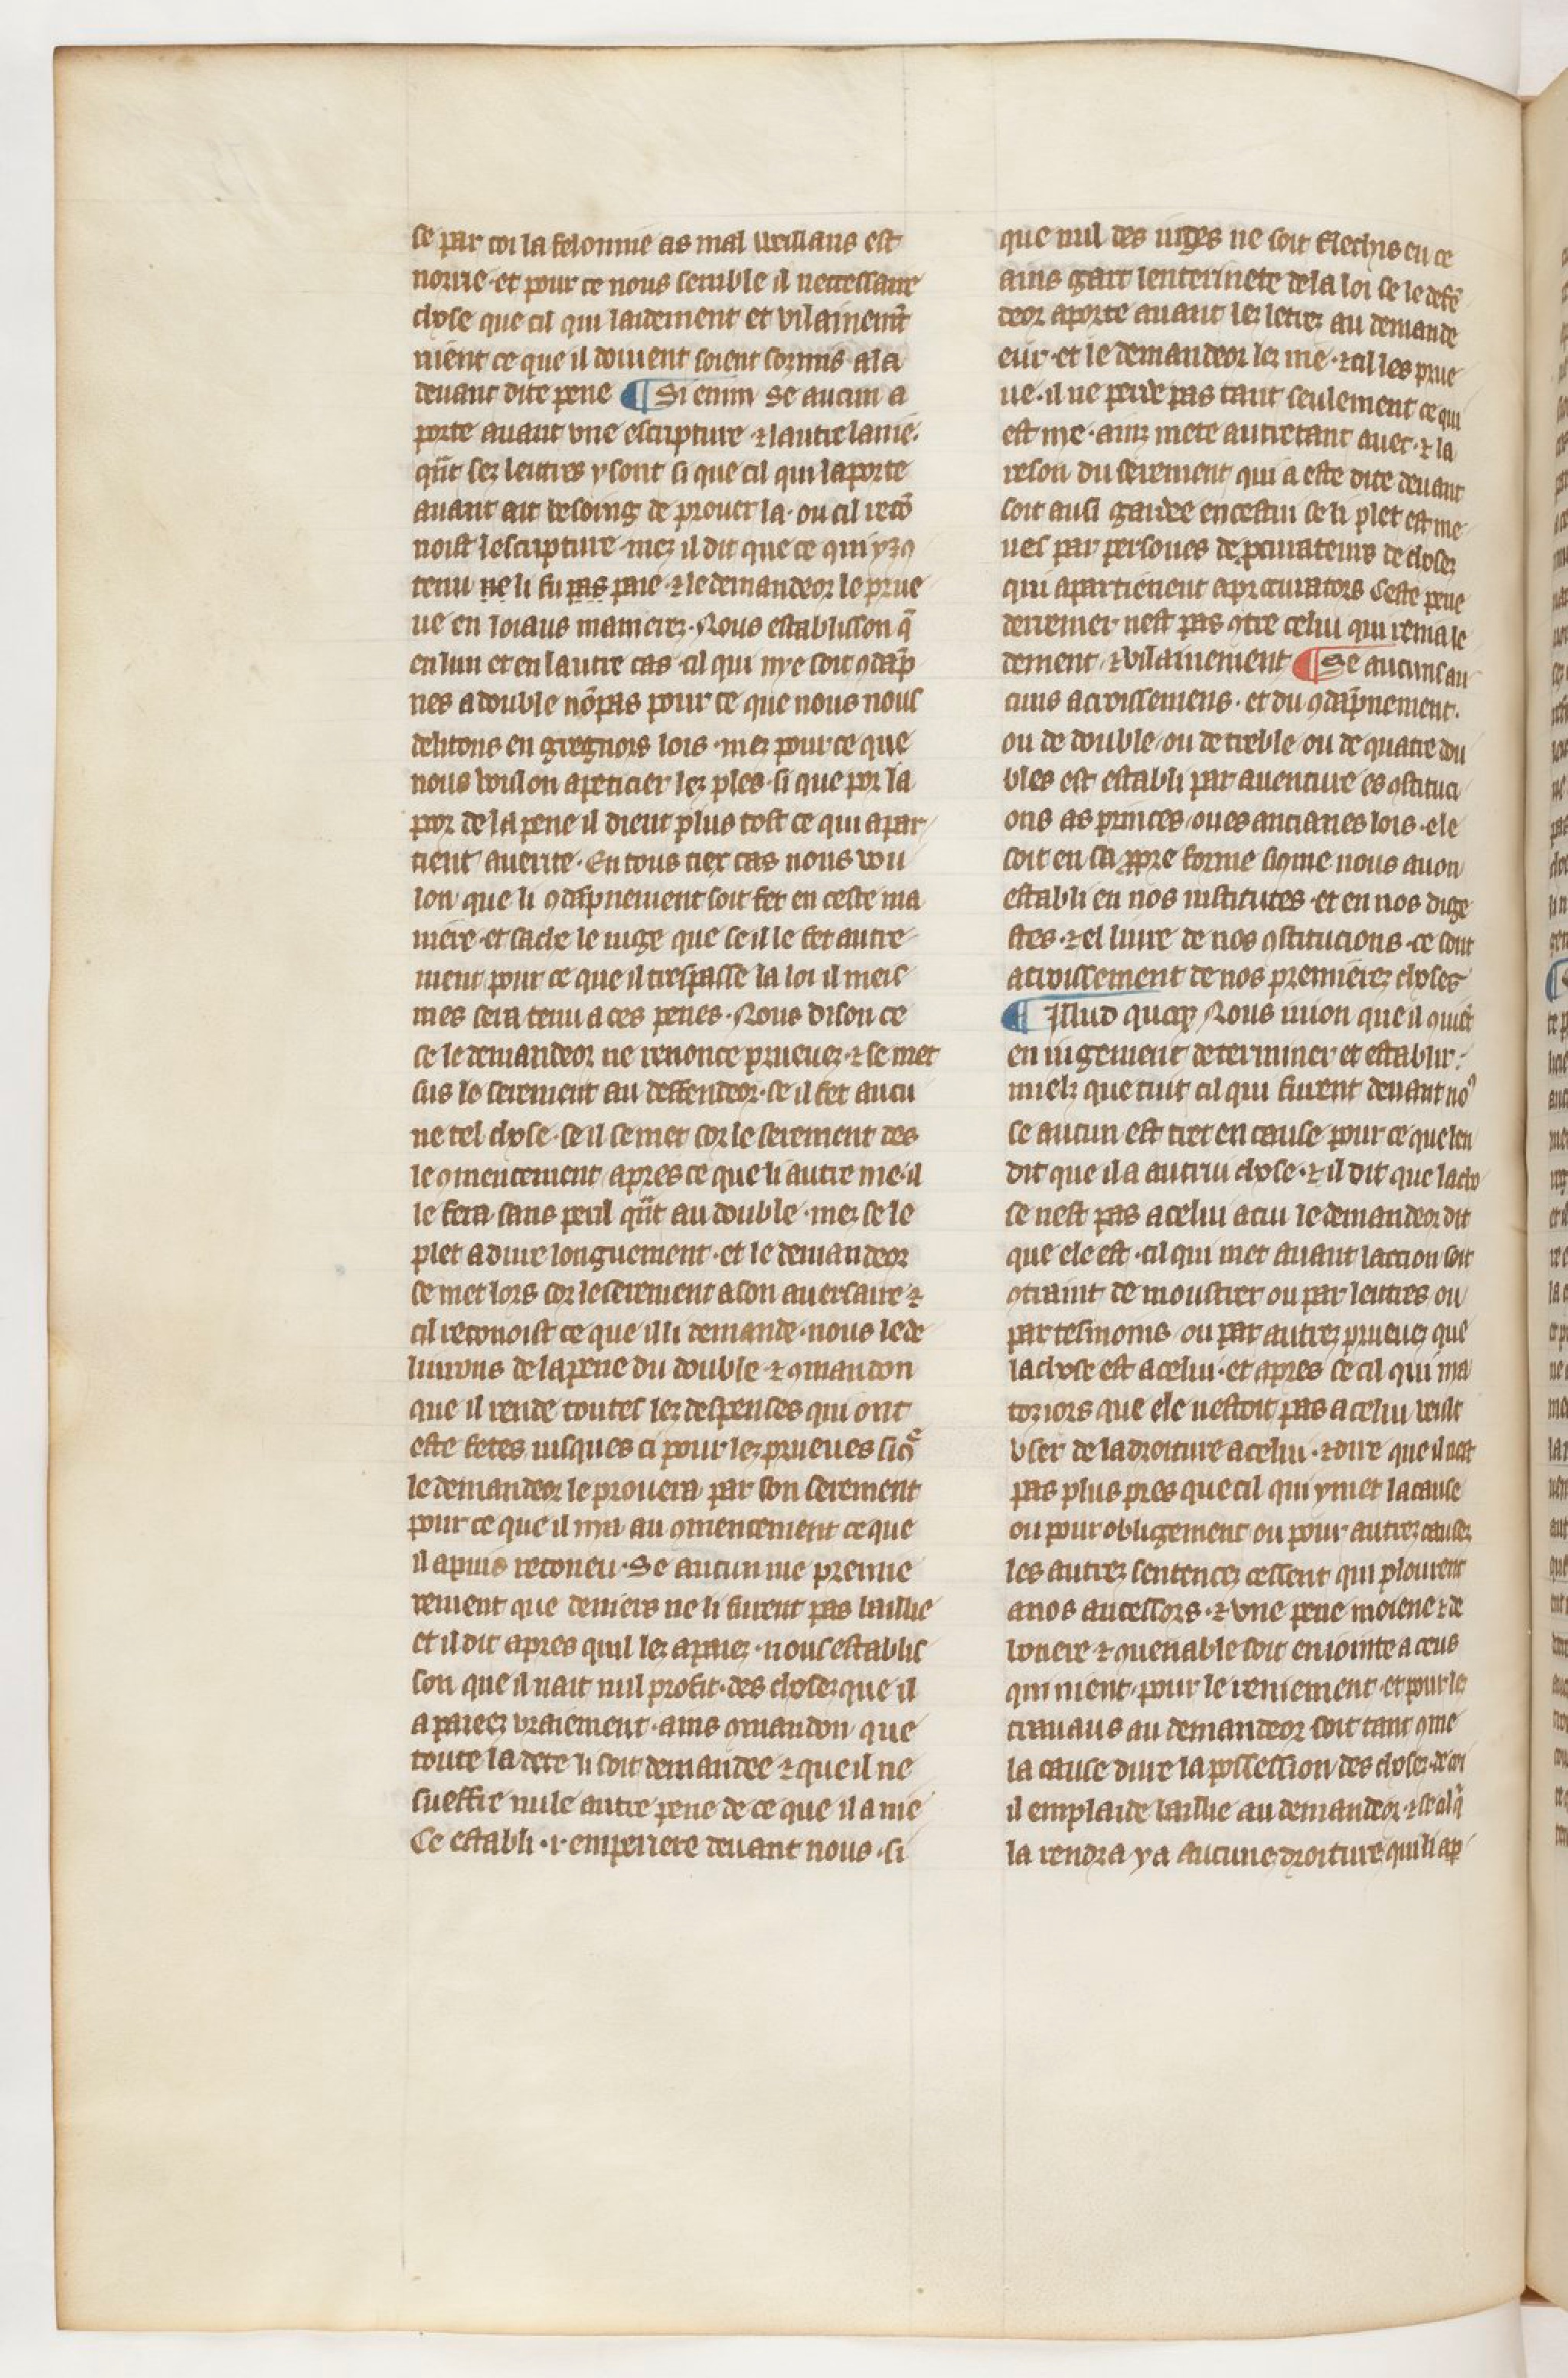 se par coi la felonnie as mal vueillans est
norrie · et pour ce nous semble il neccessaire
chose que cil qui laidement et vilainemẽt
nient ce que il doiuent soient sozmis a la
deuant dite pene ¶ Si enim Se aucun a
porte auant vne escripture · ⁊ lautre la nie ·
qũt sez lettres y sont si que cil qui laporte
auant ait besoing de prouer la · ou cil recõ
noist lescripture · mez il dit que ce qui y ꝯ
tenu ne li fu pas paie · ⁊ le demandeor le prue
ue en loiaus manierez · Nous establisson q̃
en lun et en lautre cas · cil qui nye soit ꝯdãp
nes a double nõ pas pour ce que nous nous
delitons en gregnors lois · mez pour ce que
nous voulon apeticier lez ples · si que por la
poor de la pene il dient plus tost ce qui apar
tient a uerite · En tous tiex cas nous vou
lon que li ꝯdãpnement soit fet en ceste ma
niere · et sache le iuge que se il le fet autre
ment pour ce que il trespasse la loi il meis
mes sera tenu a ces penes · Nous dison ce
se le demandeor ne renonce prueuez · ⁊ se met
sus le serement au deffendeor · se il fet aucu
ne tel chose · se il se met sor le serement des
le ꝯmencement apres ce que li autre nie · il
le fera sans peril qũt au double · mez se le
plet a dure longuement · et le demandeor
se met lors sor le serement a son auersaire · ⁊
cil reconoist ce que il li demande · nous le de
liurons de la pene du double · ⁊ ꝯmandon
que il rende toutes lez despenses qui ont
este fetes iusques ci pour lez prueues si ꝯͤ
le demandeor le prouera par son serement
pour ce que il nia au ꝯmencement ce que
il a puis reconeu · Se aucun nie premie
rement que deniers ne li furent pas baillie
et il dit apres quil lez a paiez · nous establis
son que il nait nul profit · des chosez que il
a paieez vraiement · ains ꝯmandon que
toute la dete li soit demandee ⁊ que il ne
sueffre nule autre pene de ce que il a nie
Ce establi · i · emperiere deuant nous · si
que nul des iuges ne soit flechis en ce
ains gart lenterinete de la loi se le defẽ
deor aporte auant lez letrez au demande
eur · et le demandeor lez nie · ⁊ cil les prue
ue · il ne perde pas tant seulement ce qui
est nie · ainz mete autretant auec · ⁊ la
reson du serement qui a este dite deuant
soit ausi gardee en cestui se li plet est me
ues par persones de ꝓcurateurs de chosez
qui apartienent a procurators Ceste pene
derrenier nest pas ꝯtre celui qui renia le
dement · ⁊ vilainement ¶ Se aucuns au
cuns acroissemens · et du ꝯdãpnement ·
ou de double / ou de treble / ou de quatre dou
bles est establi par auenture es ꝯstituci
ons as princes / ou es ancianes lois · ele
soit en sa ꝓpre forme si ꝯme nous auon
establi en nos institutes · et en nos dige
stes · ⁊ el liure de nos ꝯstitucions · ce sont
acroissement de nos premierez choses
¶ Illud quoqꝫ Nous iuion que il ꝯuiẽt
en iugement determiner et establir ·
mielz que tuit cil qui furent deuant noꝰ
se aucun est tret en cause pour ce que len
dit que il a autrui chose · ⁊ il dit que la cho
se nest pas a celui a cui le demandeor dit
que ele est · cil qui met auant laccion soit
ꝯtraint de moustrer ou par lettres ou
par tesmoins / ou par autrez prueuez que
la chose est a celui · et apres se cil qui nia
toziors que ele nestoit pas a celui veult
vser de la droiture a celui · ⁊ dire que il nest
pas plus pres que cil qui y met la cause
ou pour obligement ou pour autrez causez
les autrez sentencez cessent qui plourent
a nos ancessors · ⁊ vne pene moiene ⁊ de
bonere ⁊ ꝯuenable soit en iointe a ceus
qui nient · pour le reniement · et pour le
trauaus au demandeor soit tant ꝯme
la cause dure la possession des chosez · de coi
il emplaide baillie au demandeor · ⁊ se cil q̃
la rendra y a aucune droiture qui li ap